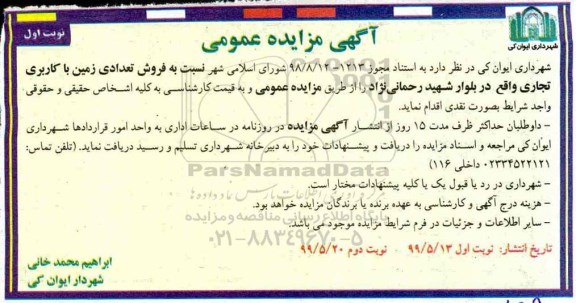 نوبت اول
آگهی مزایده عمومی
شهرداری ایوان کی
شهرداری ایوان کی در نظر دارد به استناد مجوز ۱۲۱۳-۹۸/۸/۱۴ شورای اسلامی شهر نسبت به فروش تعدادی زمین با کاربری
تجاری واقع در بلوار شهید رحمانی‌نژاد را از طریق مزایده عمومی و به قیمت کارشناسی به کلیه اشخاص حقیقی و حقوقی
واجد شرایط بصورت نقدی اقدام نماید.
- داوطلبان حداکثر ظرف مدت ۱۵ روز از انتشار آگهی مزایده در روزنامه در ساعات اداری به واحد امور قراردادها شهرداری
ایوان کی مراجعه و اسناد مزایده را دریافت و پیشنهادات خود را به دبیرخانه شهرداری تسلیم و رسید دریافت نماید. (تلفن تماس:
۰۲۳۳۴۵۲۲۱۲۱ داخلی ۱۱۶)
- شهرداری در رد یا قبول یک یا کلیه پیشنهادات مختار است.
- هزینه درج آگهی و کارشناسی به عهده برنده یا برندگان مزایده خواهد بود.
- سایر اطلاعات و جزئیات در فرم شرایط مزایده موجود می باشد.
تاریخ انتشار: نوبت اول ۹۹/۵/۱۳ نوبت دوم ۹۹/۵/۲۰
ابراهیم محمد خانی
شهردار ایوان کی
ParsNamadData
پایگاه اطلاع رسانی مناقصه و مزایده
۰۲۱-۸۸۳۴۹۶۷۰-۵